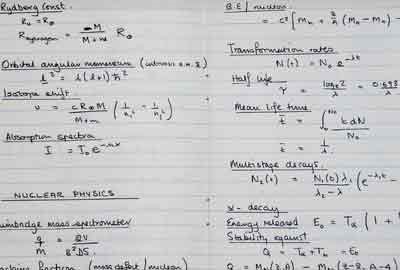 Rydberg Const.
R₀ = R∞
R hydrogen = M / M+m R∞
Orbital angular momentum
l² = l(l+1)ħ²
Isotope shift.
υ = cR∞M / M+m (1/n₁² - 1/n₂²)
Absorption spectra
I = I₀e
NUCLEAR PHYSICS
mass spectrometer
q/m = 2V / B²DS
fraction (mass defect/nucleon)
B.E/nucleon
= c² [Mn + Z/A (MH - Mn) -
Transformation rates
N(t) = N₀e^-λt
Half life
τ = loge2 / λ = 0.693 / λ
Mean life time
t̄ = ∫₀^N₀ t dN / N₀
t̄ = 1/λ
Multistage decays.
N₂(t) = N₁(0)λ₁ / λ₂ - λ₁ (e^-λ₁t -
α-decay
Energy released E₀ = Tα (1 +
Stability against
Q = Tα + Tb = E₀
Q = (Z,A) - (Z-2, A-4)